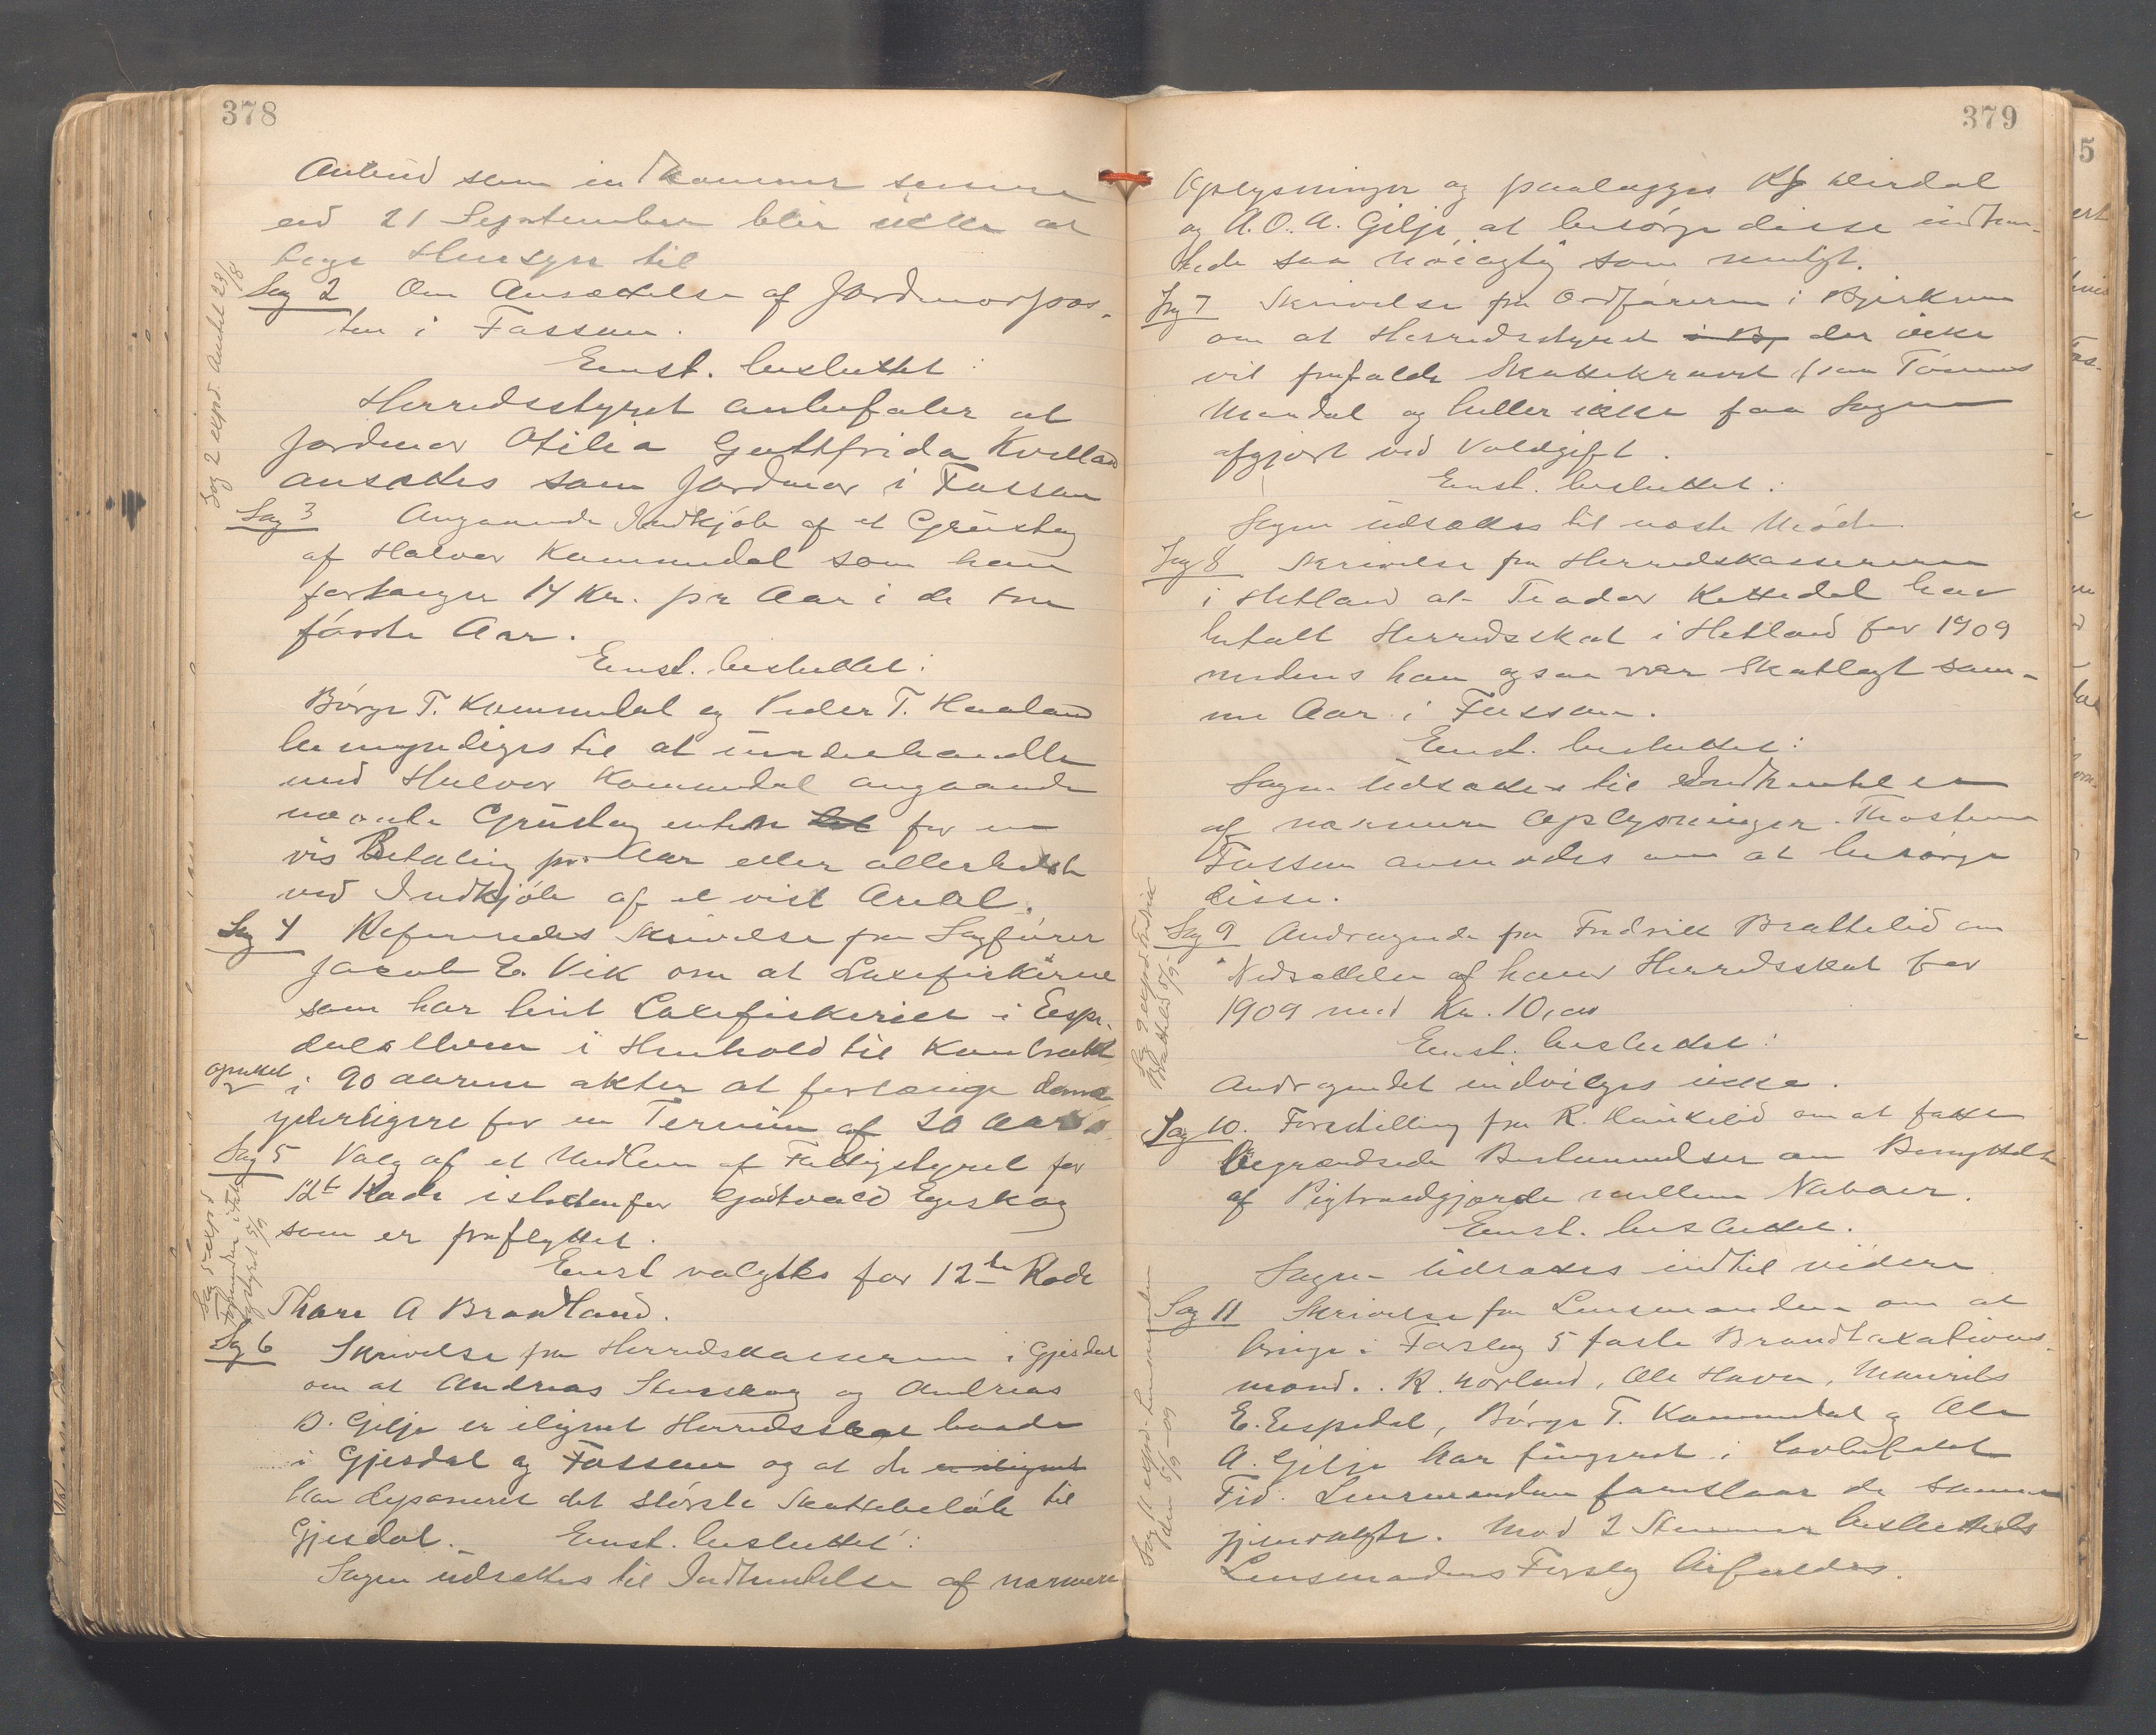 378
Anbud som indkommer senere
end 21 September blir ikke at
tage Hensyn til
Sag 2 Om Ansættelse af Jordmorpos-
ten i Fossan.
Enst. besluttet:
Herredsstyret anbefaler at
Jordmor Otilia Guttfrida Kvelland
ansættes som Jordmor i Fossan
Sag 2 expd. Amtet 28/8
Sag 3 Angaaende Indkjøb af et Grustag
af Halvor Kommedal som han
forlanger 14 Kr. pr Aar i de tre
første Aar.
Enst. besluttet:
Børge T. Kommedal og Peder T. Haaland
bemyndiges til at underhandle
med Halvor Kommedal angaaende
nævnte Grustag enten for en
vis Betaling pr. Aar eller allerhelst
ved Indkjøb af et vist Areal.
Sag 4 Refereredes Skrivelse fra Sagfører
Jacob E. Vik om at Laxefiskerne
som har leiet Laxefiskeriet i Espe-
dalselven i Henhold til Kontrakt
oprettet
i 90 aarene akter at forlænge denne
yderligere for en Termin af 20 Aar.
Sag 5 Valg af et Medlem af Fattigstyret for
12te Rode istedenfor Gotvald Egeskog
som er fraflyttet.
Enst valgtes for 12te Rode
Thore A Brandland.
Sag 5 expd
Formanden i Fat-
tigstyret 5/9
Sag 6 Skrivelse fra Herredskassereren i Gjesdal
om at Andreas Stenskog og Andreas
O. Gilje er ilignet Herredsskat baade
i Gjesdal og Fossan og at de er ilignet
har deponeret det største Skattebeløb til
Gjesdal. Enst. besluttet:
Sagen udsættes til Indhentelse af nærmere
379
Oplysninger og paalægges Kf Eirdal
og A.O.A. Gilje at besørge disse indhen-
tede saa nøiagtig som muligt.
Sag 7 Skrivelse fra Ordføreren i Bjerkrem
om at Herredsstyret i Bj der ikke
vil frafalde Skattekravet fra Tønnes
Mendal og heller ikke faa Sagen
afgjort ved Voldgift.
Enst. besluttet:
Sagen udsættes til næste Møde.
Sag 8 Skrivelse fra Herredskassereren
i Hetland at Teodor Kettedal har
betalt Herredsskat i Hetland for 1909
medens han ogsaa var Skatlagt sam-
me Aar i Fossan.
Enst. besluttet:
Sagen udsættes til Indhentelse
af nærmere Oplysninger. Thostein
Fossan anmodes om at besørge
disse.
Sag 9 Andragende fra Fredrik Brattelid om
Nedsættelse af hans Herredsskat for
1909 med Kr. 10,00
Enst. besluttet:
Andragendet indvilges ikke.
Sag 9 expd. Fredrik
Brattelid 5/9-
Sag 10. Forestilling fra R. Haukelid om at fatte
begrændsede Bestemmelser om Benyttelse
af Pigtraadgjærde mellem Naboer.
Enst. besluttet.
Sagen udsættes indtil videre
Sag 11 Skrivelse fra Lensmanden om at
bringe i Forslag 5 faste Brandtaxations-
mænd. R. Norland, Ole Haven, Mourits
E. Espedal, Børge T. Kommedal og Ole
A. Gilje har fungeret i Lovbefalet
Tid. Lensmanden foreslaar de samme
gjenvalgte. Mod 2 Stemmer besluttedes
Lensmandens Forslag bifaldes.
Sag 11 expd. Lensmanden
den 5/9-09